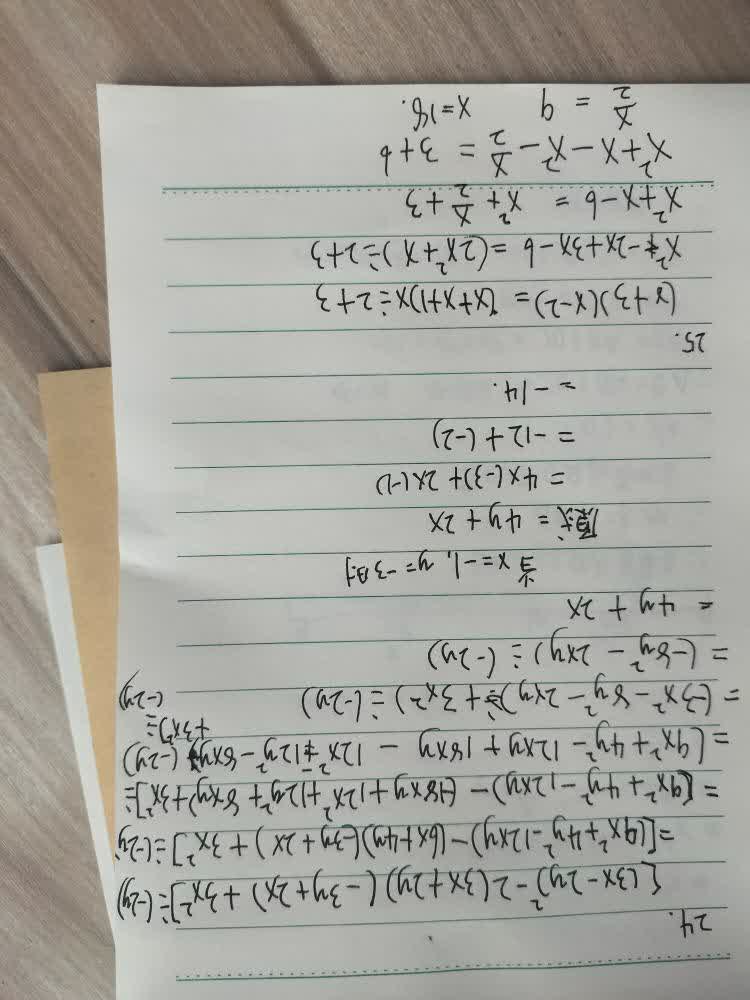 24.
[(3x-2y)²-2(3x+2y)(-3y+2x)+3x²]÷(-2y)
=[(9x²+4y²-12xy)-(6x+4y)(-3y+2x)+3x²]÷(-2y
=[(9x²+4y²-12xy)-(-18xy+12x²+12y²+8xy)+3x²]÷
=(9x²+4y²-12xy+18xy-12x²-12y²-8xy (-2y)
+3x²]÷
=(-3x²-8y²-2xy)+3x²)÷(-2y) (-2y)
=(-8y²-2xy)÷(-2y)
=4y+2x
当x=-1, y=-3时
原式=4y+2x
=4x(-3)+2x(-1)
=-12+(-2)
=-14.
25.
(x+3)(x-2)=(x+x+1)x÷2+3
x²-2x+3x-6=(2x²+x)÷2+3
x²+x-6=x²+x/2+3
x²+x-x²-x/2=3+6
x/2=9 x=18.